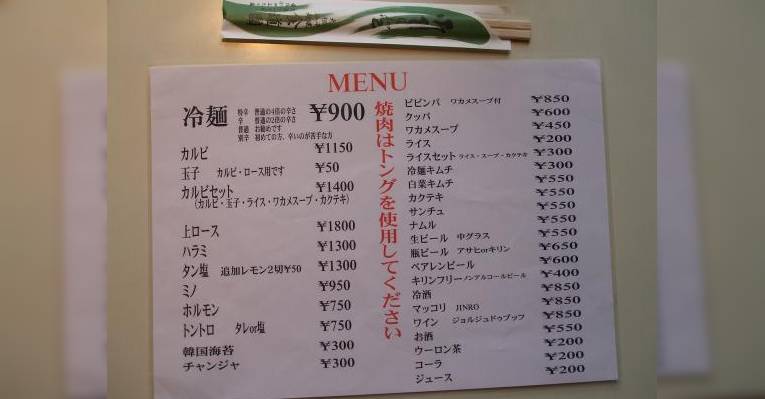 MENU
冷麺 特辛 普通の4倍の辛さ ¥900
辛 普通の2倍の辛さ
普通 お勧めです
別辛 初めての方、辛いのが苦手な方
カルビ ¥1150
玉子 カルビ・ロース用です ¥50
カルビセット ¥1400
(カルビ・玉子・ライス・ワカメスープ・カクテキ)
上ロース ¥1800
ハラミ ¥1300
タン塩 追加レモン2切¥50 ¥1300
ミノ ¥950
ホルモン ¥750
トントロ タレor塩 ¥750
韓国海苔 ¥300
チャンジャ ¥300
焼肉はトングを使用してください
ビビンバ ワカメスープ付 ¥850
クッパ ¥600
ワカメスープ ¥450
ライス ¥200
ライスセット ライス・スープ・カクテキ ¥300
冷麺キムチ ¥300
白菜キムチ ¥550
カクテキ ¥550
サンチュ ¥550
ナムル ¥550
生ビール 中グラス ¥550
瓶ビール アサヒorキリン ¥650
ベアレンビール ¥600
キリンフリー ノンアルコールビール ¥400
冷酒 ¥850
マッコリ JINRO ¥850
ワイン ジョルジュドゥブッフ ¥850
お酒 ¥550
ウーロン茶 ¥200
コーラ ¥200
ジュース ¥200